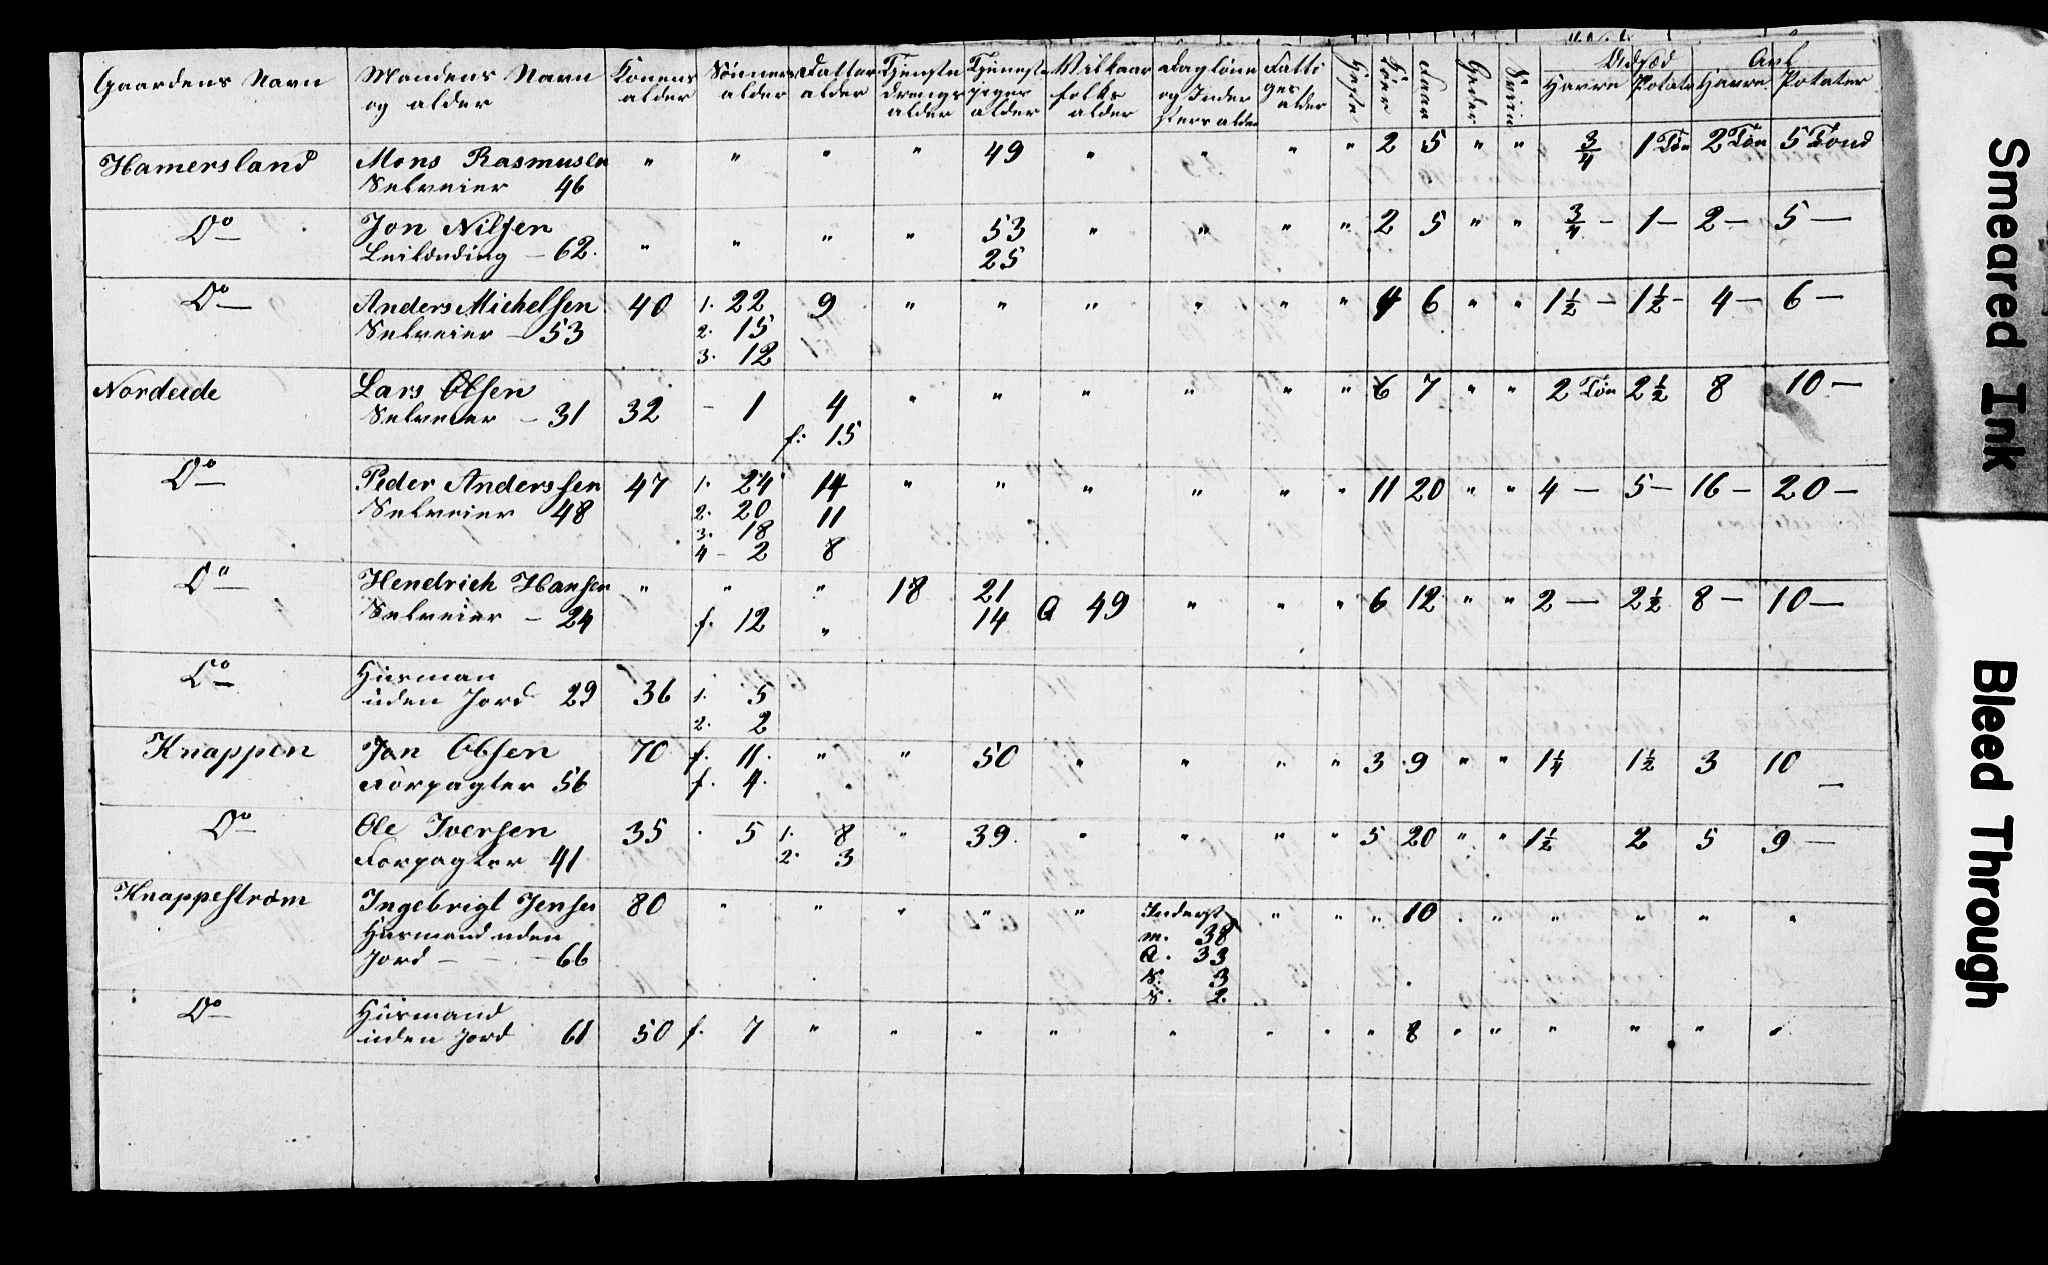 Gaardens Navn | Mandens Navn og alder | Konens alder | Sønners alder | Datters alder | Tjeneste drenges alder | Tjeneste piges alder | Vilkaar folks alder | Dagløne og Inder sters alder | Fatti ges alder | Heste | Kiør | Faar | Geder | Sviin | Udsæd Havre | Potater | Avl Havre | Potater
Hamersland | Mons Rasmusen | " | " | " | " | 49 | " | " | " | " | 2 | 5 | " | " | 3/4 | 1 Tøn | 2 Tøn | 5 Tond
Selveier 46
Do | Jon Nilsen | 53 | " | " | " | 2 | 5 | " | " | 3/4 — | 1 — | 2 — | 5 —
Leilænding — 62. | " | " | " | " | 25
Do | Anders Michelsen | 40 | 1. 22 | 9 | " | " | " | " | " | " | 4 | 6 | " | " | 1 1/2 — | 1 1/2 — | 4 — | 6 —
Selveier — 53 | 2. 15
3. 12
Nordeide | Lars Olsen | " | " | " | " | " | " | 6 | 7 | " | " | 2 Tøn | 2 1/2 | 8 | 10 —
Selveier — 31 | 32 | - 1 | 4
f: 15
Do | Peder Anderssen | 47 | 1. 24 | 14 | " | " | " | " | " | " | 11 | 20 | " | " | 4 — | 5 — | 16 — | 20 —
Selveier 48 | 2. 20 | 11
3. 18
4 - 2 | 8
Do | Hendrich Hansen | " | " | " | 18 | 21 | Q 49 | " | " | " | 6 | 12 | " | " | 2 — | 2 1/2 | 8 — | 10 —
Selveier — 24 | f. 12 | " | 14
Do | Huusman
uden Jord 29 | 36 | 1. 5
2. 2
Knappen | Jan Olsen | 70 | f. 11. | " | " | 50 | " | " | " | " | 3 | 9 | " | " | 1 1/4 | 1 1/2 | 3 | 10 —
Forpagter 56 | f. 4.
Do | Ole Iversen | 35 | 5 | 1. 8 | " | 39. | " | " | " | " | 5 | 20 | " | " | 1 1/2 | 2 | 5 | 9 —
Forpagter 41 | 2. 3
Knappestrøm | Ingebrigt Jensen | 80 | " | " | " | " | " | Inderst | " | " | " | 10 | " | " | " | " | " | "
Huusmand uden | m. 38
Jord — — 66 | Q. 33
S. 3
S. 2
Do | Huusmand
uden Jord 61 | 50 | f. 7 | " | " | " | " | " | " | " | " | 8 | " | " | " | " | " | "
Smeared Ink
Bleed Through